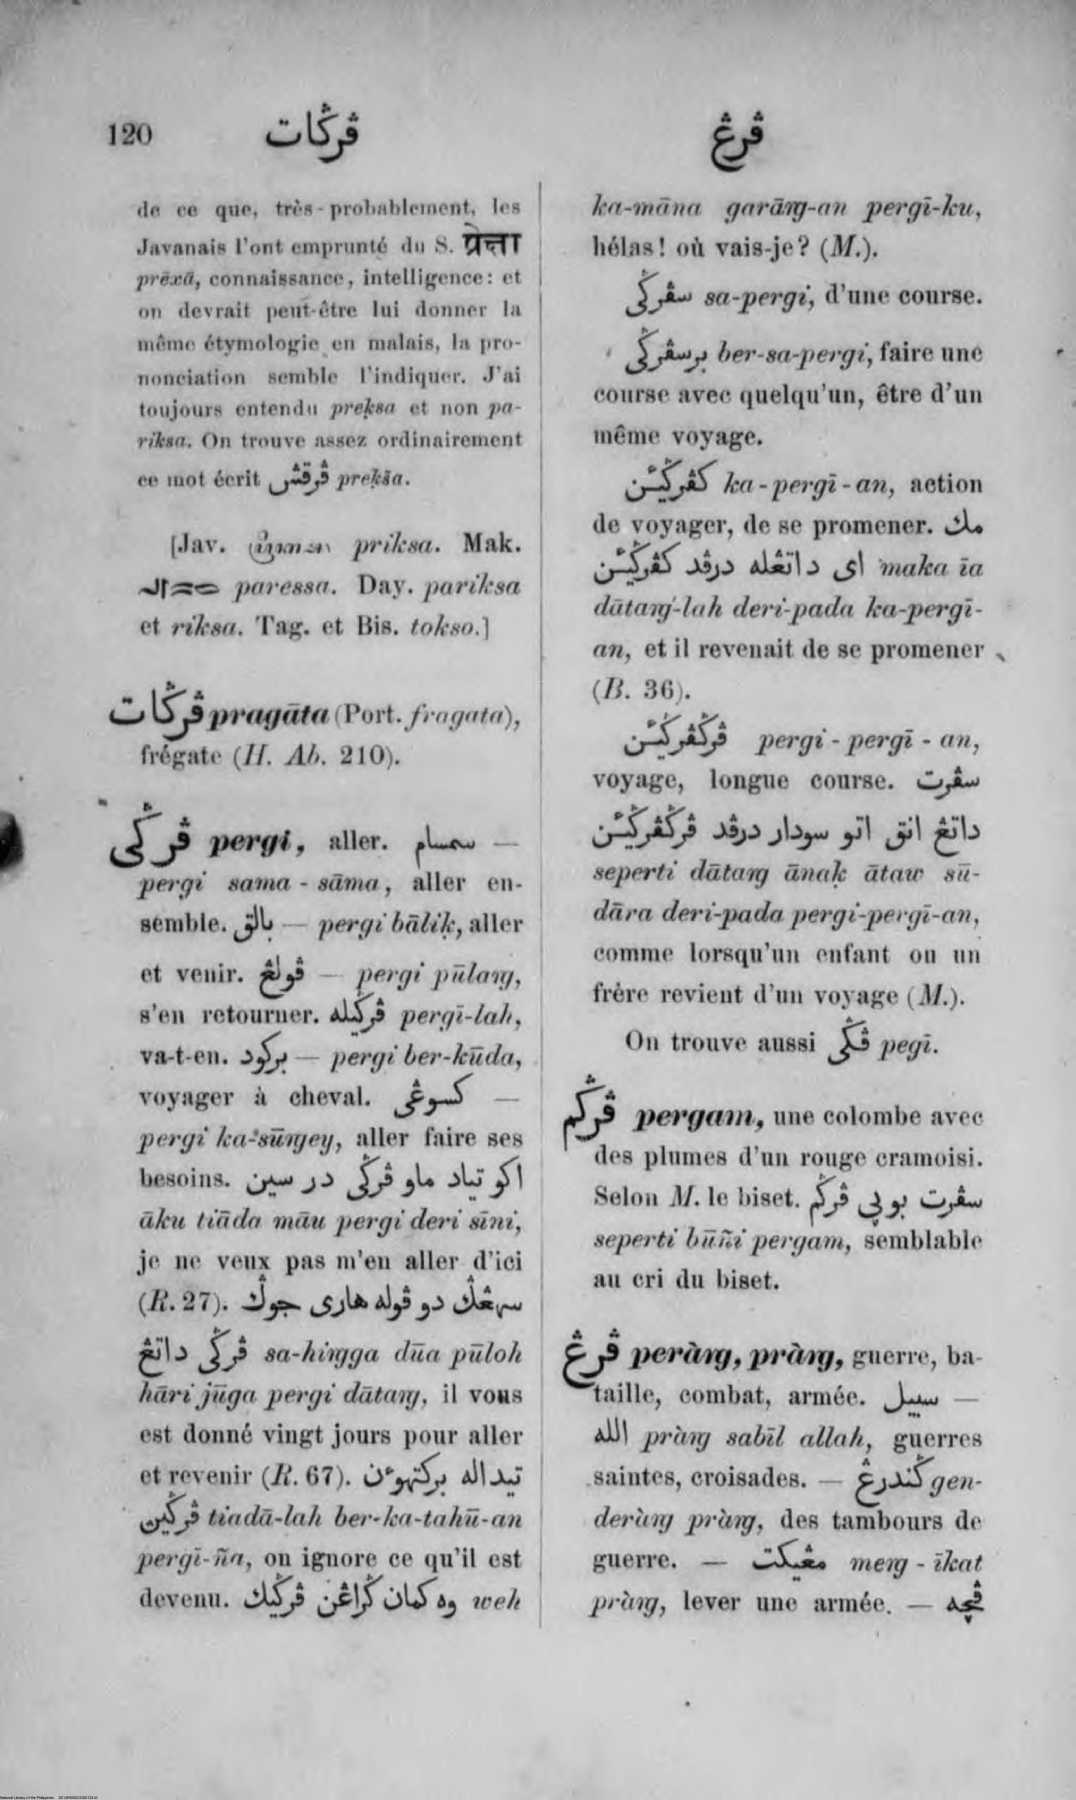 120
ڤرݢات
ڤرڠ
de ce que, très-probablement, les
Javanais l'ont emprunté du S. प्रेत्ता
prēxā, connaissance, intelligence: et
on devrait peut-être lui donner la
même étymologie en malais, la pro-
nonciation semble l'indiquer. J'ai
toujours entendu preḳsa et non pa-
riksa. On trouve assez ordinairement
ce mot écrit ڤرقش preḳša.
[Jav. priksa. Mak.
paressa. Day. pariksa
et riksa. Tag. et Bis. tokso.]
ڤرݢات pragāta (Port. fragata),
frégate (H. Ab. 210).
ڤرݢي pergi, aller. سمسام —
pergi sama-sāma, aller en-
semble. بالق — pergi bāliḳ, aller
et venir. ڤولڠ — pergi pūlaɱg,
s'en retourner. ڤرݢيله pergī-lah,
va-t-en. برکود — pergi ber-kūda,
voyager à cheval. کسوڠي —
pergi ka-sūɱgey, aller faire ses
besoins. اکو تياد ماو ڤرݢي در سين
āku tiāda māu pergi deri sīni,
je ne veux pas m'en aller d'ici
(R. 27). سهڠݢ دو ڤوله هاري جوݢ
ڤرݢي داتڠ sa-hiɱgga dūa pūloh
hāri jūga pergi dātaɱg, il vous
est donné vingt jours pour aller
et revenir (R. 67). تيداله برکتهوءن
ڤرݢين tiadā-lah ber-ka-tahū-an
pergī-ña, on ignore ce qu'il est
devenu. وه کمان ݢراڠن ڤرݢيک weh
ka-māna garāɱg-an pergī-ku,
hélas! où vais-je? (M.).
سڤرݢي sa-pergi, d'une course.
برسڤرݢي ber-sa-pergi, faire une
course avec quelqu'un, être d'un
même voyage.
کڤرݢيئن ka-pergī-an, action
de voyager, de se promener. مک
اي داتڠله درڤد کڤرݢيئن maka īa
dātaɱg-lah deri-pada ka-pergī-
an, et il revenait de se promener
(B. 36).
ڤرݢڤرݢيئن pergi-pergī-an,
voyage, longue course. سڤرت
داتڠ انق اتو سودار درڤد ڤرݢڤرݢيئن
seperti dātaɱg ānaḳ ātaw sū-
dāra deri-pada pergi-pergī-an,
comme lorsqu'un enfant ou un
frère revient d'un voyage (M.).
On trouve aussi ڤݢي pegī.
ڤرݢم pergam, une colombe avec
des plumes d'un rouge cramoisi.
Selon M. le biset. سڤرت بوڽي ڤرݢم
seperti būñi pergam, semblable
au cri du biset.
ڤرڠ peràɱg, pràɱg, guerre, ba-
taille, combat, armée. سبيل —
الله pràɱg sabīl allah, guerres
saintes, croisades. — ݢندرڠ gen-
deràɱg pràɱg, des tambours de
guerre. — مڠيکت meɱg-īkat
pràɱg, lever une armée. — ڤچه